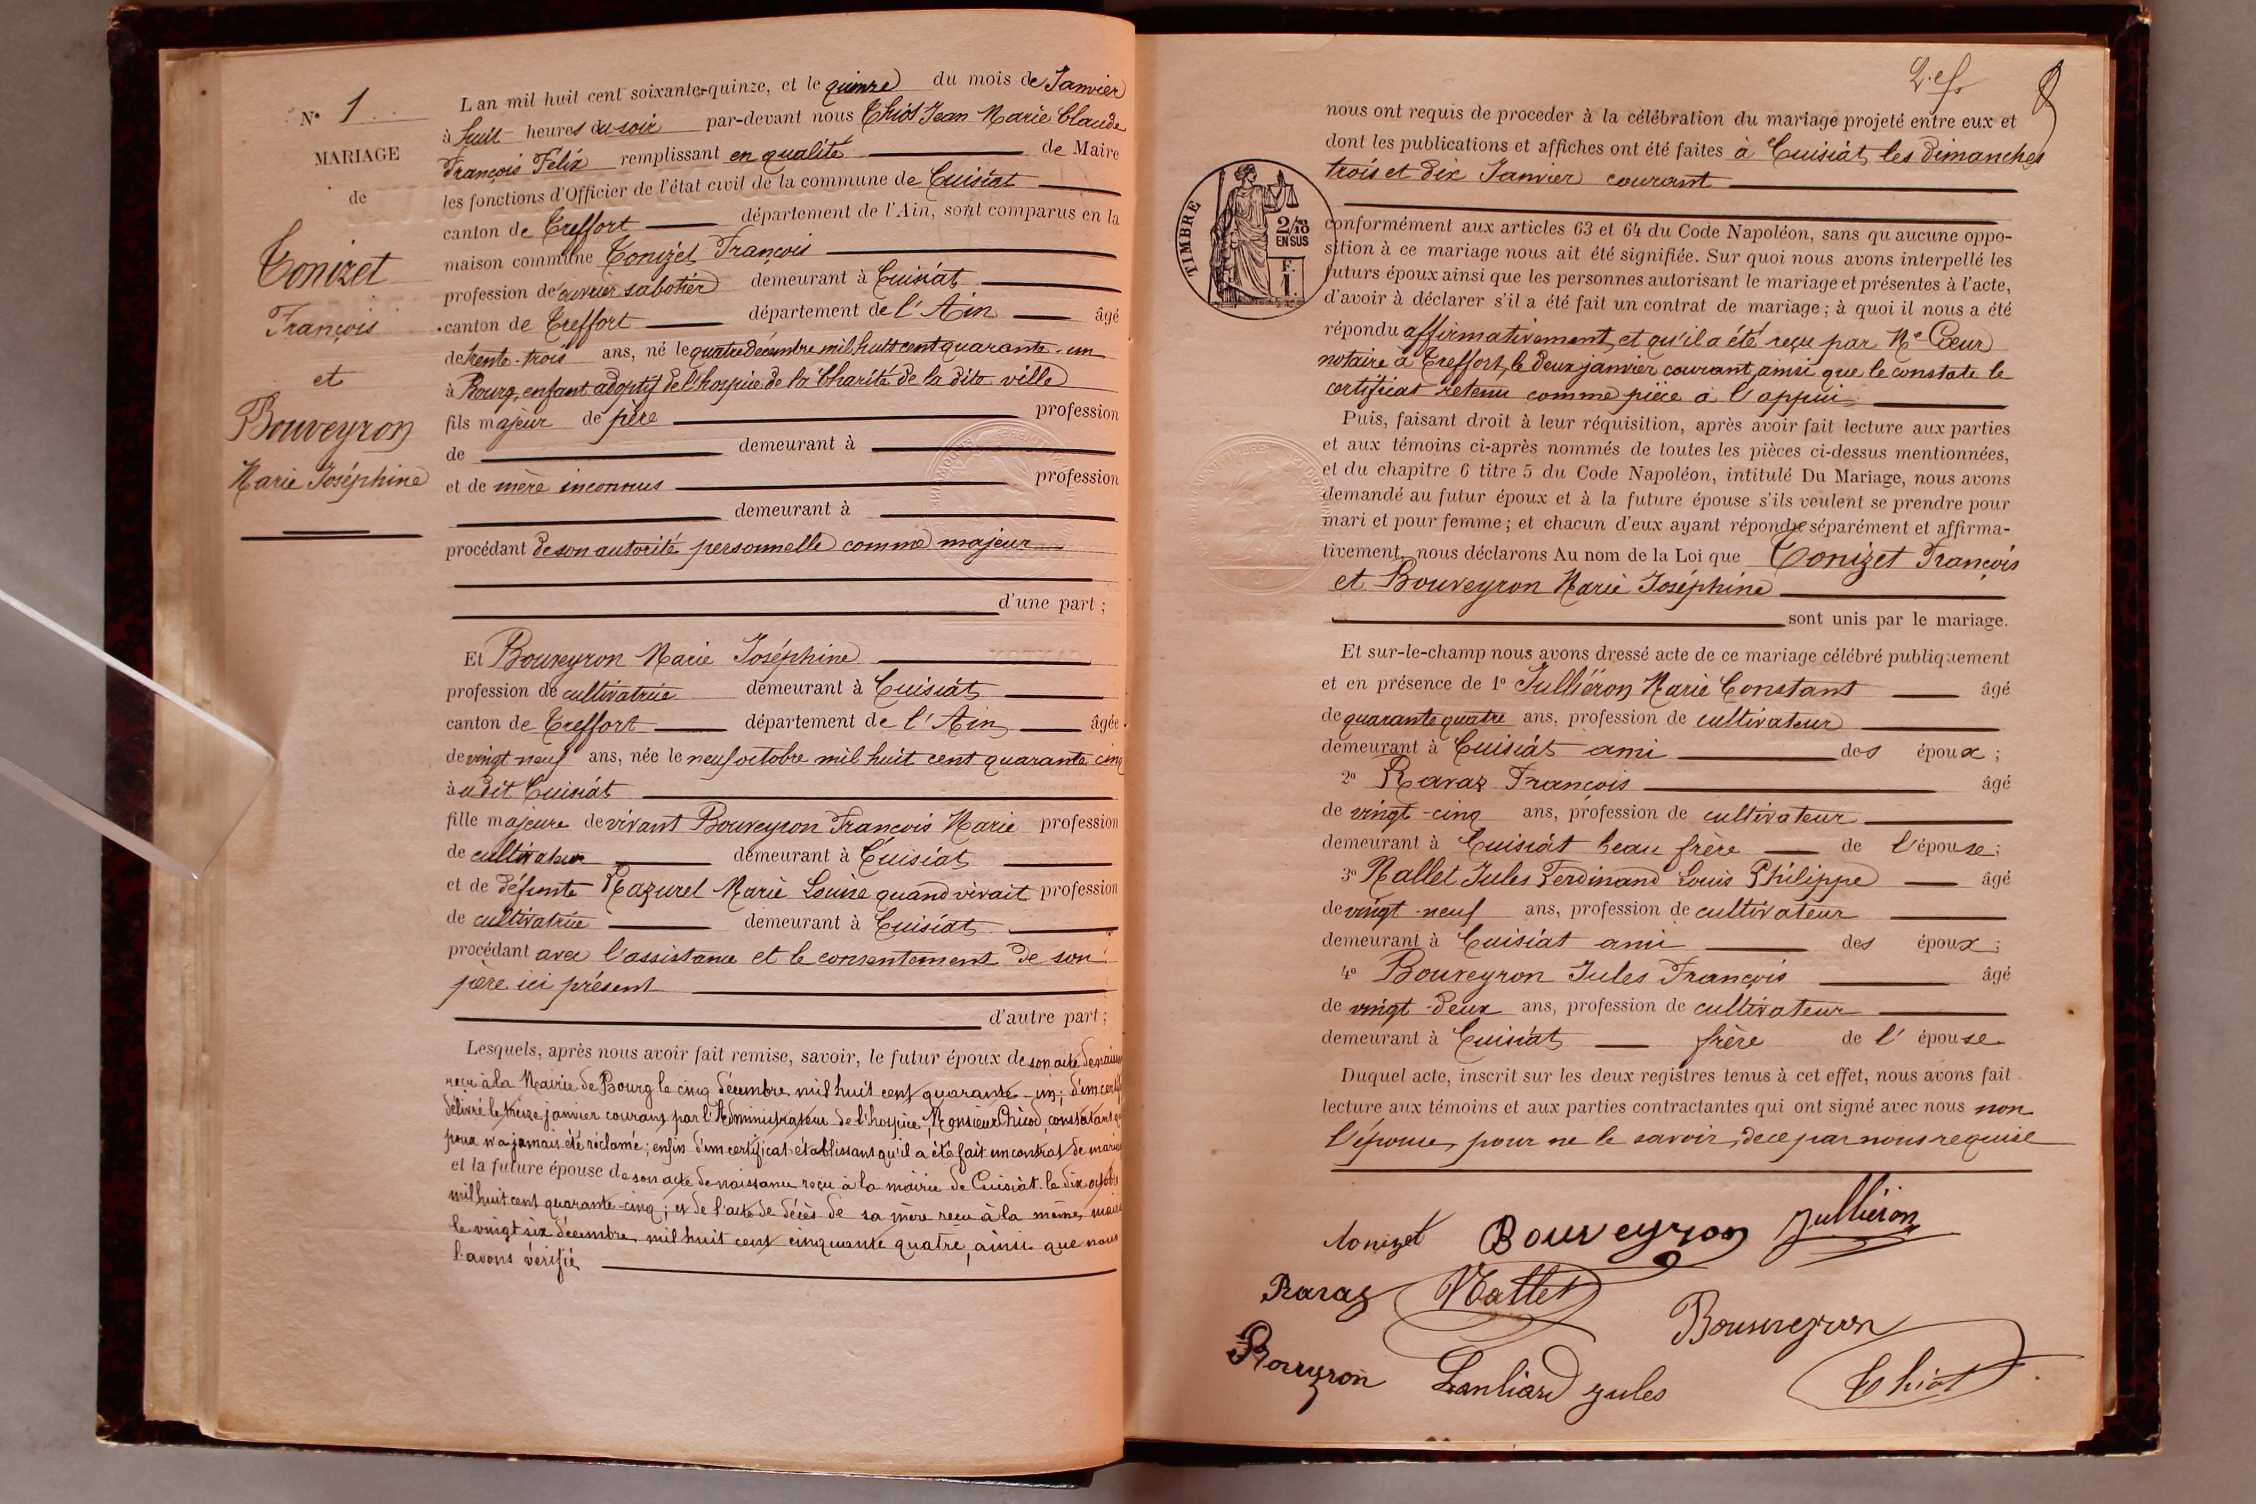 N° 1
MARIAGE
de
Tonizet
François
et
Bouveyron
Marie Joséphine
L'an mil huit cent soixante-quinze, et le quinze du mois de Janvier
à huit heures du soir par-devant nous Chiot Jean Marie Claude
François Félix remplissant en qualité de Maire
les fonctions d'Officier de l'état civil de la commune de Cuisiat
canton de Treffort département de l'Ain, sont comparus en la
maison commune Tonizet François
profession de ouvrier sabotier demeurant à Cuisiat
canton de Treffort département de l'Ain âgé
de trente-trois ans, né le quatre décembre mil huit cent quarante-un
à Bourg, enfant adoptif de l'hospice de la Charité de la dite ville
fils majeur de père profession
de demeurant à
et de mère inconnus profession
demeurant à
procédant de son autorité personnelle comme majeur
d'une part ;
Et Bouveyron Marie Joséphine
profession de cultivatrice demeurant à Cuisiat
canton de Treffort département de l'Ain âgée
de vingt neuf ans, née le neuf octobre mil huit cent quarante cinq
à u dit Cuisiat
fille majeure de vivant Bouveyron François Marie profession
de cultivateur demeurant à Cuisiat
et de défunte Mazurel Marie Louise quand vivait profession
de cultivatrice demeurant à Cuisiat
procédant avec l'assistance et le consentement de son
père ici présent
d'autre part ;
Lesquels, après nous avoir fait remise, savoir, le futur époux de son acte de naiss
reçu à la Mairie de Bourg le cinq décembre mil huit cent quarante-un ; d'un certif
délivré le treize janvier courant par l'Administrateur de l'hospice, Monsieur Chicod, constatant q
poux n'a jamais été réclamé ; enfin d'un certificat établissant qu'il a été fait un contrat de maria
et la future épouse de son acte de naissance reçu à la mairie de Cuisiat le dix octobre
mil huit cent quarante-cinq ; et de l'acte de décès de sa mère reçu à la même mairie
le vingt six décembre mil huit cent cinquante quatre, ainsi que nous
l'avons vérifié
nous ont requis de proceder à la célébration du mariage projeté entre eux et
dont les publications et affiches ont été faites à Cuisiat, les dimanches
trois et dix Janvier courant
TIMBRE
2/10
EN SUS
conformément aux articles 63 et 64 du Code Napoléon, sans qu'aucune oppo-
sition à ce mariage nous ait été signifiée. Sur quoi nous avons interpellé les
futurs époux ainsi que les personnes autorisant le mariage et présentes à l'acte,
d'avoir à déclarer s'il a été fait un contrat de mariage ; à quoi il nous a été
répondu affirmativement, et qu'il a été reçu par Me Cœur
notaire à Treffort, le deux janvier courant, ainsi que le constate le
certificat retenu comme pièce à l'appui
Puis, faisant droit à leur réquisition, après avoir fait lecture aux parties
et aux témoins ci-après nommés de toutes les pièces ci-dessus mentionnées,
et du chapitre 6 titre 5 du Code Napoléon, intitulé Du Mariage, nous avons
demandé au futur époux et à la future épouse s'ils veulent se prendre pour
mari et pour femme ; et chacun d'eux ayant répondu séparément et affirma-
tivement, nous déclarons Au nom de la Loi que Tonizet François
et Bouveyron Marie Joséphine
sont unis par le mariage.
Et sur-le-champ nous avons dressé acte de ce mariage célébré publiquement
et en présence de 1° Julliéron Marie Constant âgé
de quarante quatre ans, profession de cultivateur
demeurant à Cuisiat ami des époux ;
2° Ravaz François âgé
de vingt-cinq ans, profession de cultivateur
demeurant à Cuisiat beau frère de l'épouse ;
3° Mallet Jules Ferdinand Louis Philippe âgé
de vingt-neuf ans, profession de cultivateur
demeurant à Cuisiat ami des époux ;
4° Bouveyron Jules François âgé
de vingt-deux ans, profession de cultivateur
demeurant à Cuisiat frère de l'épouse
Duquel acte, inscrit sur les deux registres tenus à cet effet, nous avons fait
lecture aux témoins et aux parties contractantes qui ont signé avec nous non
l'épouse, pour ne le savoir, de ce par nous requise
tonizet Bouveyron Julliéron
Ravaz Mallet Bouveyron
Bouveyron Jules Chiot